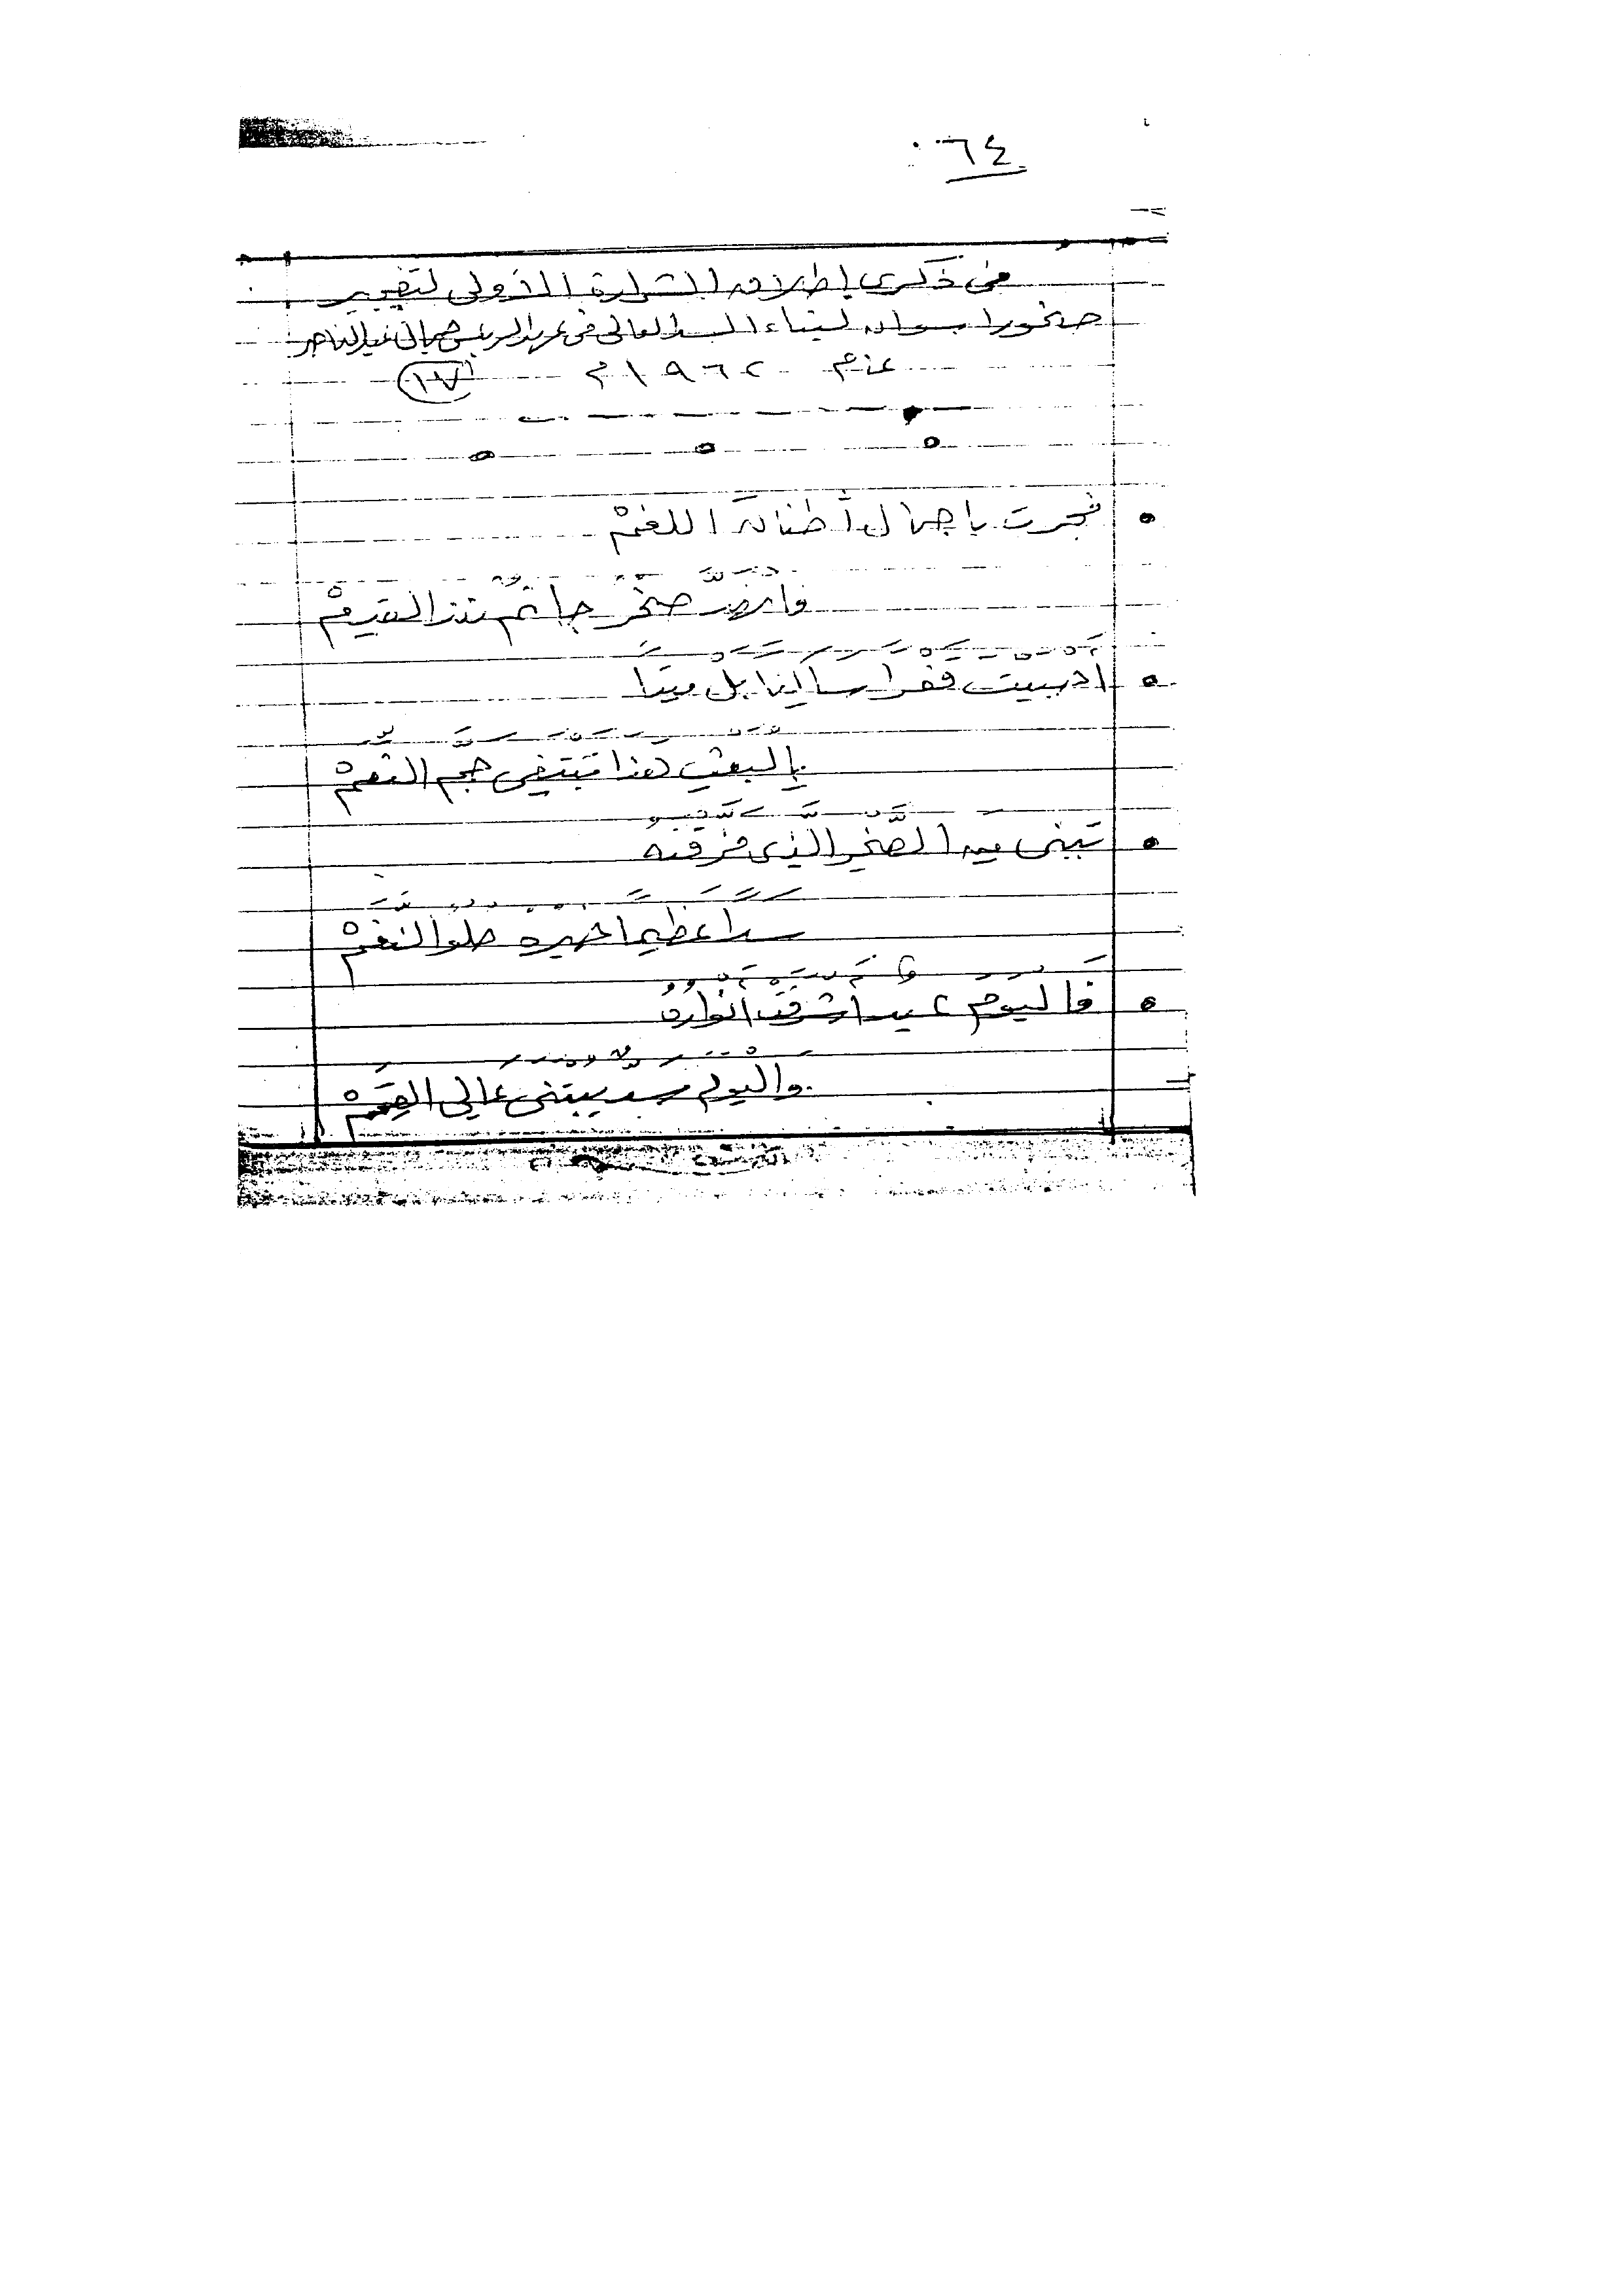 ٦٤
فى ذكرى إطلاق الشرارة الأولى لتفجير
صخور اسوان لبناء السد العالى فى عهد الرئيس جمال عبد الناصر
عام ١٩٦٢ م
فجرت يا جمال أطنان اللغم
وانهد صخر جاثم منذ القدم
احييت قفرا ساكنا بل ميتا
بالبعث هذا تبتغى حجم النعم
تبنى من الصخر الذى مزقته
سدا عظيما خيره حلو النغم
فاليوم عيد اشرقت انواره
واليوم سد يبتنى عالى القمم